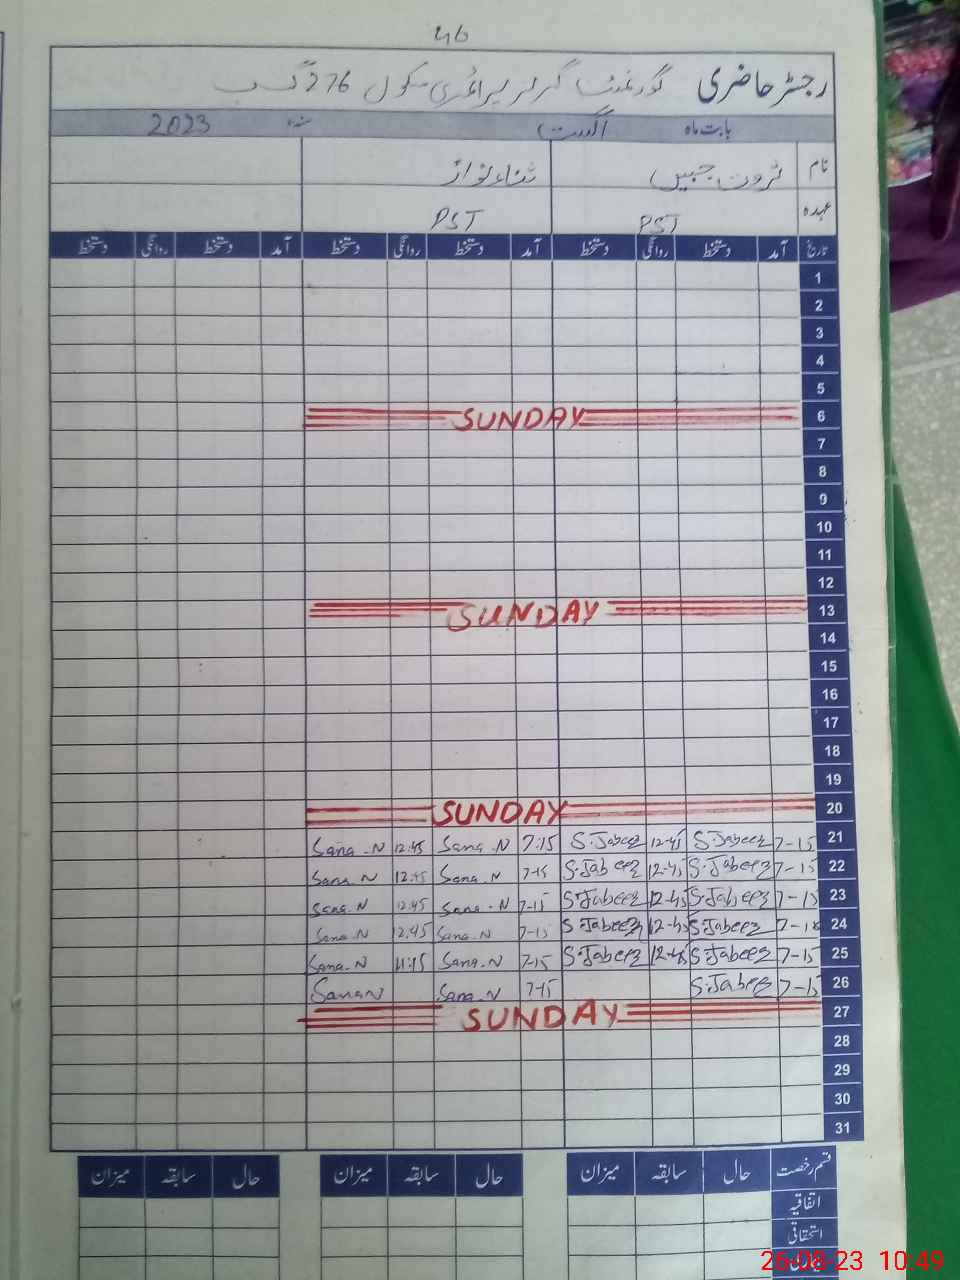 46
رجسٹر حاضری گورنمنٹ گرلز پرائمری سکول 276 گ ب
بابت ماہ اگست سنہ 2023
نام ثروت جبیں ثناء نواز
عہدہ PST PST
تاریخ آمد دستخط روانگی دستخط آمد دستخط روانگی دستخط آمد دستخط روانگی دستخط
1
2
3
4
5
6 SUNDAY
7
8
9
10
11
12
13 SUNDAY
14
15
16
17
18
19
20 SUNDAY
21 7-15 S.Jabeez 12-45 S.Jabeez 7.15 Sana.N 12:45 Sana.N
22 7-15 S.Jabeez 12-45 S.Jabeez 7-15 Sana.N 12:45 Sana.N
23 7-15 S.Jabeez 12-45 S.Jabeez 7-15 Sana.N 12.45 Sana.N
24 7-15 S.Jabeez 12-45 S.Jabeez 7-15 Sana.N 12.45 Sana.N
25 7-15 S.Jabeez 12-45 S.Jabeez 7-15 Sana.N 11:15 Sana.N
26 7-15 S.Jabeez 7-15 Sana.N Sana N
27 SUNDAY
28
29
30
31
قسم رخصت حال سابقہ میزان حال سابقہ میزان حال سابقہ میزان
اتفاقیہ
استحقاقی
26-08-23 10:49